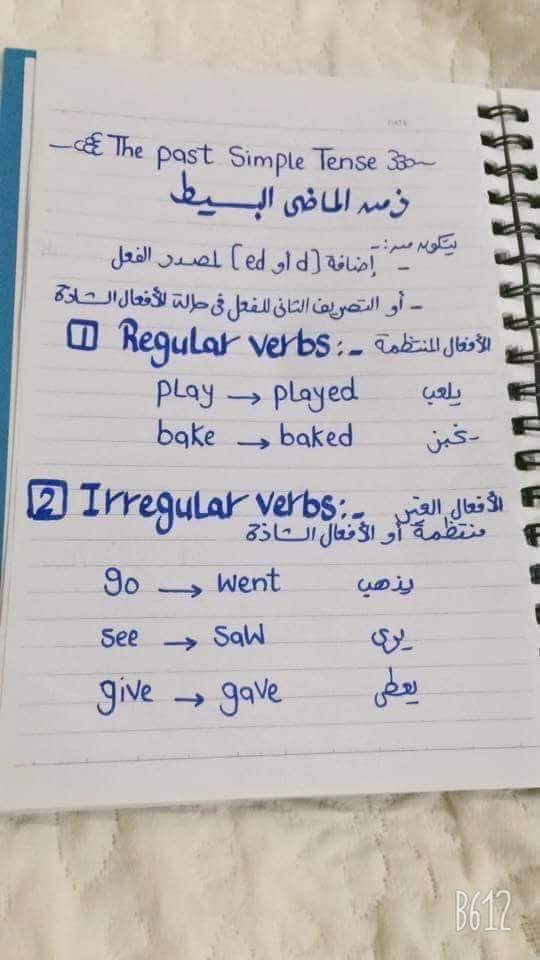 The past Simple Tense
زمن الماضى البسيط
يتكون من:-
- إضافة [d أو ed] لمصدر الفعل
- أو التصريف الثانى للفعل فى حالة الأفعال الشاذة
1 Regular verbs:- الأفعال المنتظمة
play → played يلعب
bake → baked يخبز
2 Irregular verbs:- الأفعال الغير
منتظمة أو الأفعال الشاذة
go → went يذهب
see → saw يرى
give → gave يعطى
B612